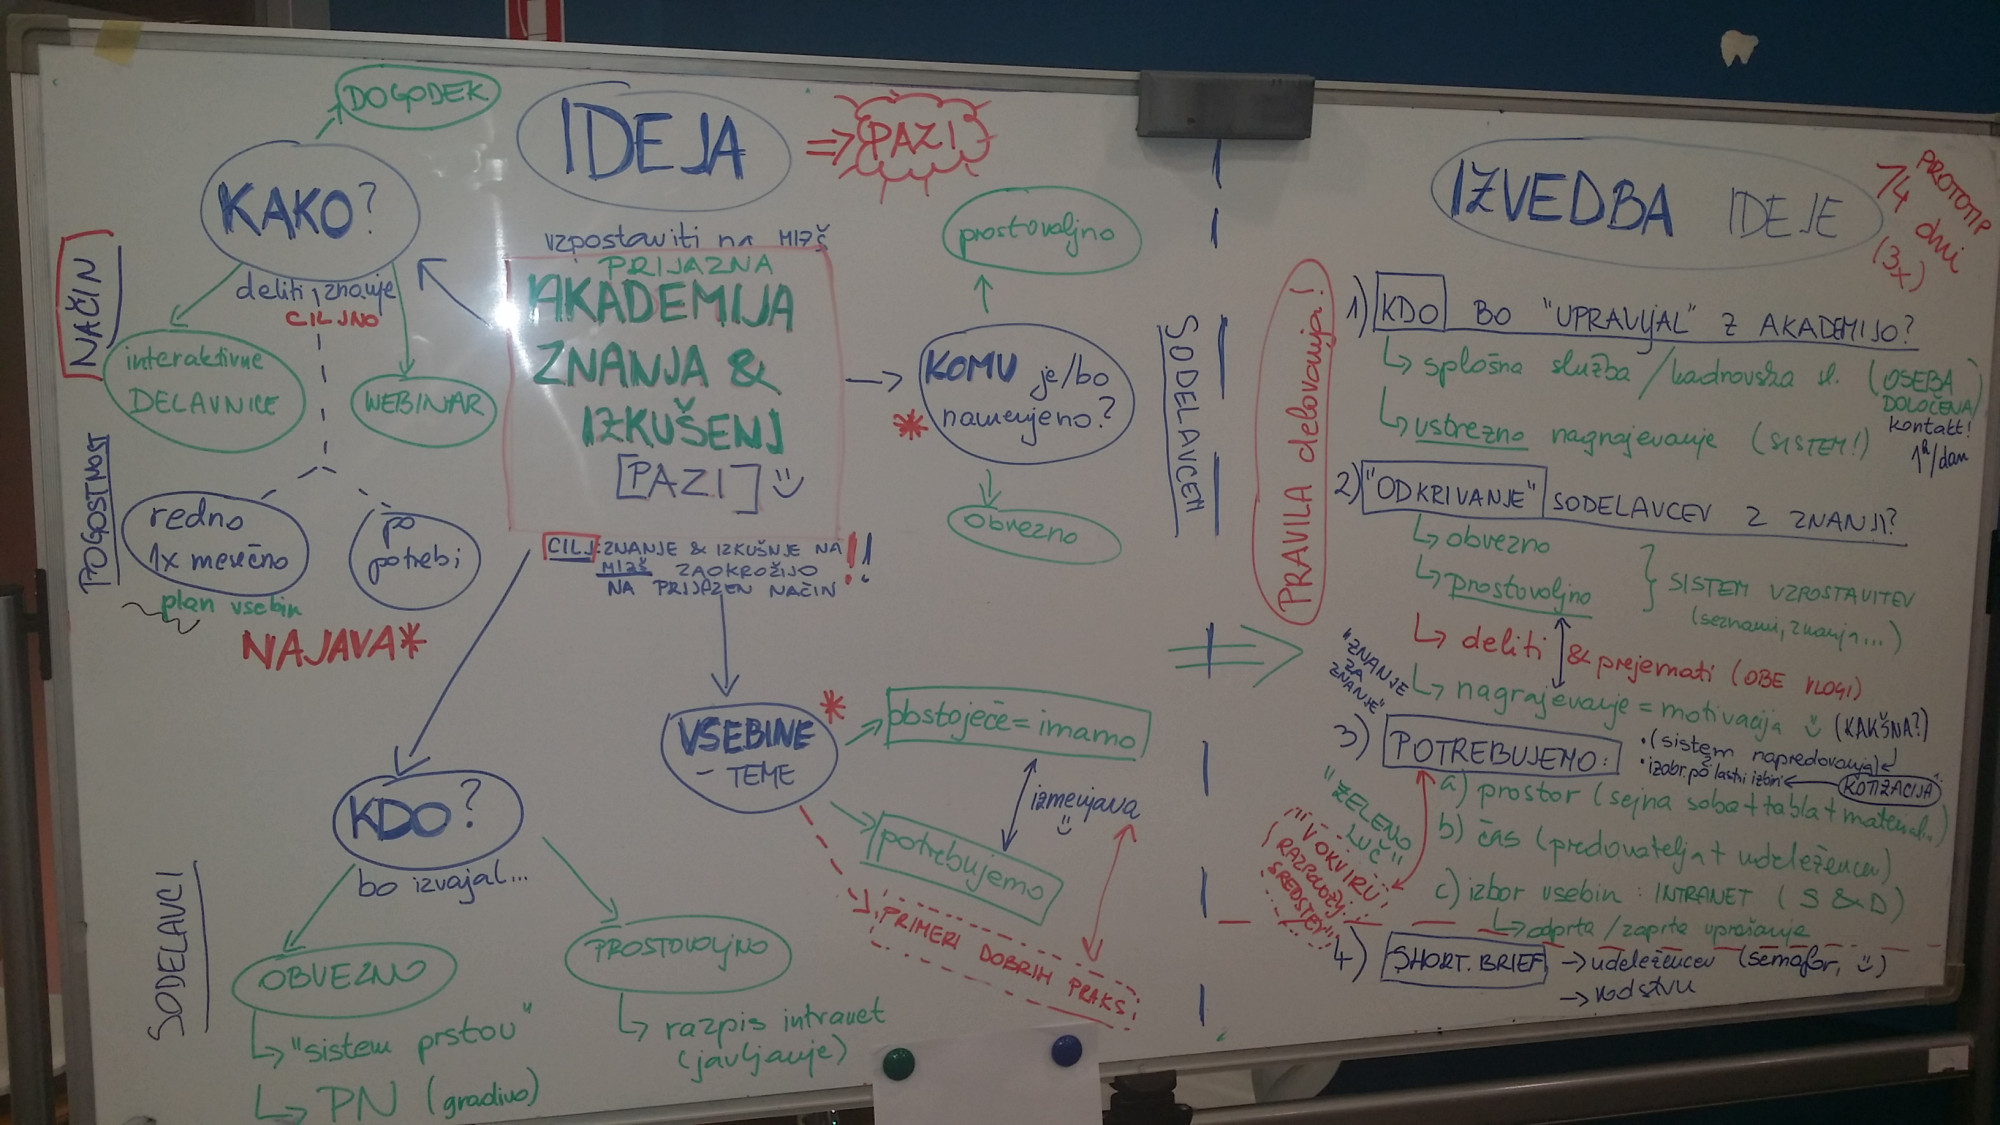 IDEJA
⇒ PAZI
vzpostaviti na MIZŠ
PRIJAZNA
AKADEMIJA
ZNANJA &
IZKUŠENJ
[PAZI]
CILJ: ZNANJE & IZKUŠNJE NA !!
MIZŠ ZAOKROŽIJO
NA PRIJAZEN NAČIN
DOGODEK
KAKO?
deliti znanje
CILJNO
NAČIN
interaktivne
DELAVNICE
WEBINAR
POGOSTNOST
redno
1x mesečno
po
potrebi
plan vsebin
NAJAVA*
prostovoljno
KOMU je/bo
* namenjeno?
obvezno
SODELAVCEM
VSEBINE *
- TEME
obstoječe = imamo
izmenjava
potrebujemo
PRIMERI DOBRIH PRAKS
KDO?
bo izvajal...
SODELAVCI
OBVEZNO
"sistem prstov"
PN (gradivo)
PROSTOVOLJNO
razpis intranet
(javljanje)
IZVEDBA IDEJE
PROTOTIP
14 dni
(3x)
PRAVILA delovanja!
1) KDO BO "UPRAVLJAL" Z AKADEMIJO?
splošna služba / kadrovska sl. (OSEBA
DOLOČENA)
kontakt!
1h/dan
ustrezno nagrajevanje (SISTEM!)
2) "ODKRIVANJE" SODELAVCEV Z ZNANJI?
obvezno
prostovoljno
SISTEM VZPOSTAVITEV
(seznami, znanja...)
deliti & prejemati (OBE VLOGI)
"ZNANJE
ZA
ZNANJE"
nagrajevanje = motivacija (KAKŠNA?)
3) POTREBUJEMO:
• (sistem napredovanja)
• izobr. po lastni izbiri
KOTIZACIJA
"ZELENO
LUČ"
"V OKVIRU
RAZPOLOŽ.
SREDSTEV"
a) prostor (sejna soba + tabla + material...)
b) čas (predavatelja + udeležencev)
c) izbor vsebin: INTRANET (S & D)
odprta / zaprta vprašanja
4) SHORT. BRIEF → udeležencev (semafor,)
→ vodstvu